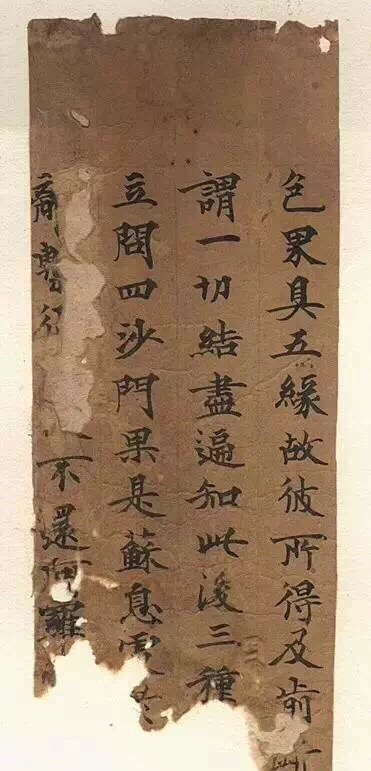 色界具五緣故彼所得及前
謂一切結盡遍知此後三種
立問四沙門果是蘇息
齊專 不還阿羅